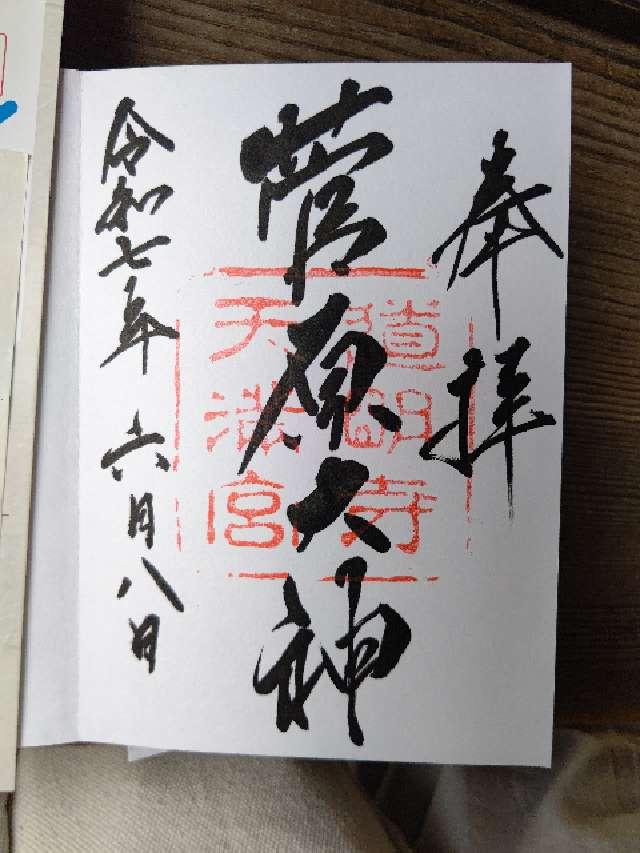 奉拝
菅原大神
道明寺
天満宮
令和七年六月八日